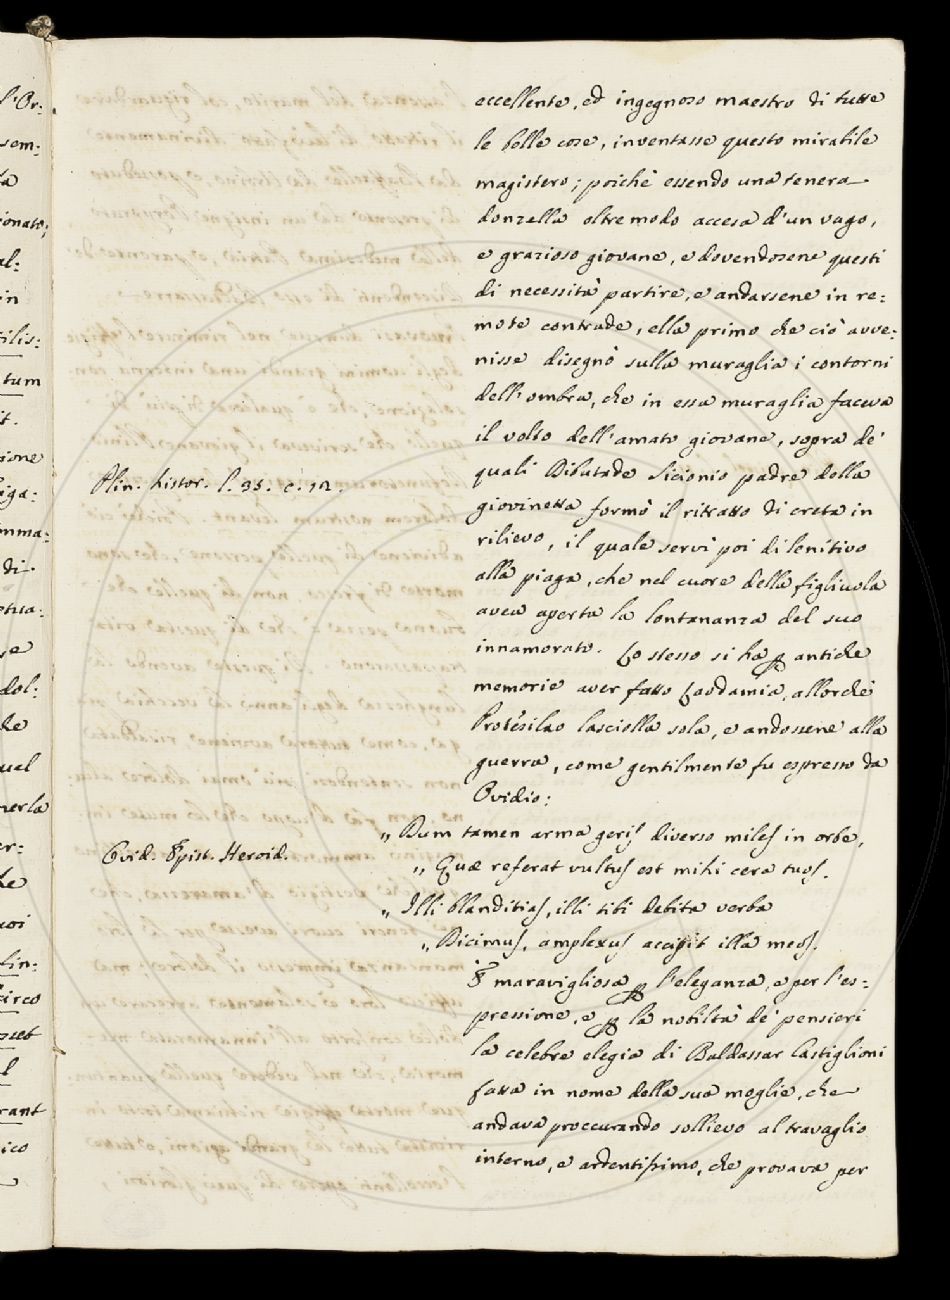 eccellente, ed ingegnoso maestro di tutte
le belle cose, inventasse questo mirabile
magistero; poichè essendo una tenera
donzella oltremodo accesa d'un vago,
e grazioso giovane, e dovendosene questi
di necessità partire, e andarsene in re:
mote contrade, ella primo che ciò avve:
nisse disegnò sulla muraglia i contorni
dell'ombra, che in essa muraglia faceva
il volto dell'amato giovane, sopra de'
quali Dibutade Sicionio padre della
Plin. histor. l. 35. c. 12.
giovinetta formò il ritratto di creta in
rilievo, il quale servì poi di lenitivo
alla piaga, che nel cuore della figliuola
avea aperta la lontananza del suo
innamorato. Lo stesso si ha ꝑ antiche
memorie aver fatto Laodamia, allorchè
Protèsilao lasciolla sola, e andossene alla
guerra, come gentilmente fu espresso da
Ovidio:
„ Dum tamen arma geris diverso miles in orbe,
Ovid. Epist. Heroid.
„ Quæ referat vultus est mihi cera tuos.
„ Illi blanditias, illi tibi debita verba
„ Dicimus, amplexus accipit illa meos.
È maravigliosa ꝑ l'eleganza, e per l'es:
pressione, e ꝑ la nobiltà de' pensieri
la celebre elegia di Baldassar Castiglioni
fatta in nome della sua moglie, che
andava proccurando sollievo al travaglio
interno, e ardentissimo, che provava per
l'Or:
sem:
ionato;
al:
in
tilis:
tum
it.
zione
iga:
mma:
di
dol:
ual
nerla
er:
fin:
irco
rant
ico